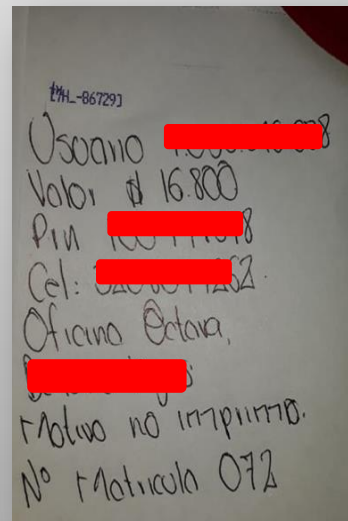 [7H_-86729]
Usuario
Valor $ 16.800
Pin
Cel:
Oficina Octava,
Motivo no imprimio.
Nº Matricula 072